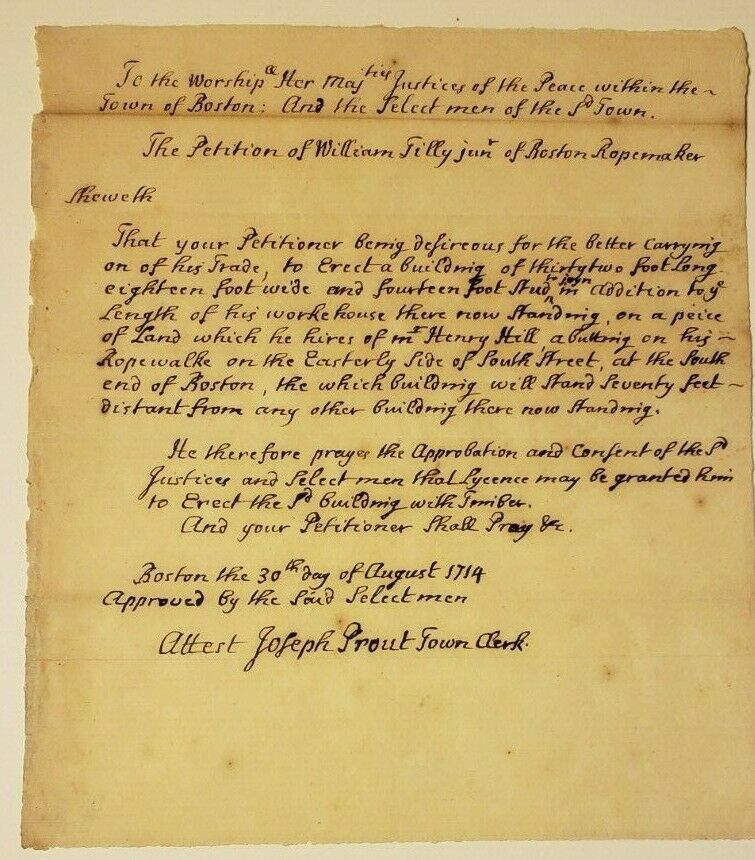 To the Worship.ll Her Maj.ties Justices of the Peace within the~
Town of Boston: And the Select men of the Sd Town.
The Petition of William Tilly junr of Boston Ropemaker
Sheweth
That your Petitioner being desireous for the better Carrying
on of his Trade, to Erect a building of thirtytwo foot Long
eighteen foot wide and fourteen foot Stud, to joyn in Addition to ye
Length of his workehouse there now Standing, on a peice
of Land which he hires of mr Henry Hill, abutting on his~
Ropewalke on the Easterly Side of South Street, at the South
end of Boston, the which building will Stand Seventy feet~
distant from any other building there now Standing.
He therefore prayes the Approbation and Consent of the Sd
Justices and Select men that Lycence may be granted him
to Erect the Sd building with Timber.
And your Petitioner Shall Pray &c.
Boston the 30th day of August 1714
Approved by the Said Select men
Attest Joseph Prout Town Clerk.